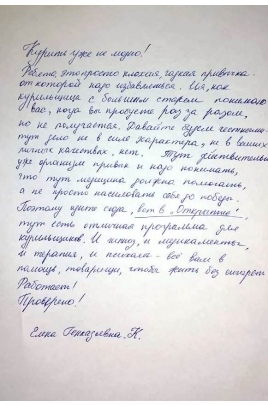 Курить уже не модно!
Ребята, это просто плохая, гадкая привычка
от которой надо избавляться. Я, как
курильщица с большим стажем понимаю
вас, когда вы пробуете раз за разом,
но не получается. Давайте будем честными -
тут дело не в силе характера, не в ваших
личных качествах, нет. Тут действительно
уже организм привык и надо понимать,
что тут медицина должна помогать,
а не просто насиловать себя до победы.
Поэтому идите сюда, вот в "Открытие",
тут есть отличная программа для
курильщиков. И метод, и медикаменты,
и терапия, и психолог - всё вам в
помощь, товарищи, чтобы жить без сигарет
Работает!
Проверено!
Елена Геннадьевна К.